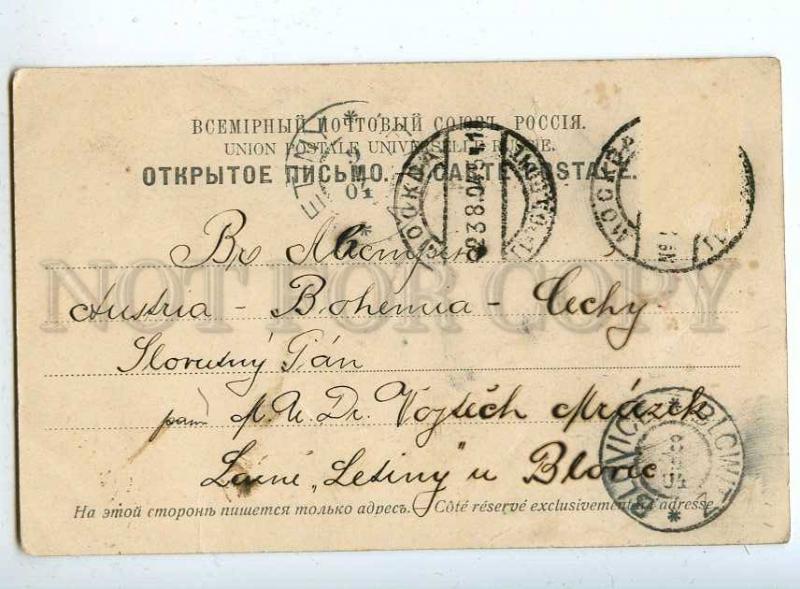 ВСЕМІРНЫЙ ПОЧТОВЫЙ СОЮЗЪ. РОССІЯ.
UNION POSTALE UNIVERSELLE RUSSIE.
ОТКРЫТОЕ ПИСЬМО. — CARTE POSTALE.
МОСКВА
23 8.04
МОСКВА
04
Въ Австрію
Austria - Bohemia - Čechy
Slovutný Pán
paní M. U. Dr. Vojtěch Mrázek
Lázně „Letiny" u Blovic
BLOVICE BLOWITZ
8
9
04
На этой сторонѣ пишется только адресъ. — Côté réservé exclusivement à l'adresse.
NOT FOR COPY